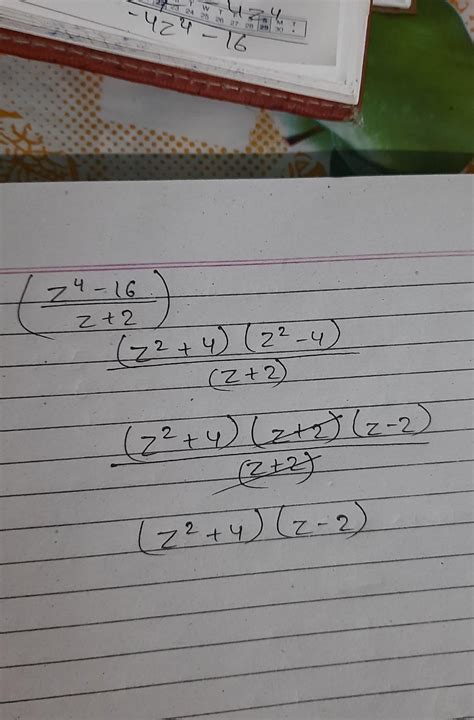 -4z⁴
-4z⁴ - 16
(z⁴ - 16 / z + 2)
(z² + 4) (z² - 4) / (z + 2)
(z² + 4) (z + 2) (z - 2) / (z + 2)
(z² + 4) (z - 2)